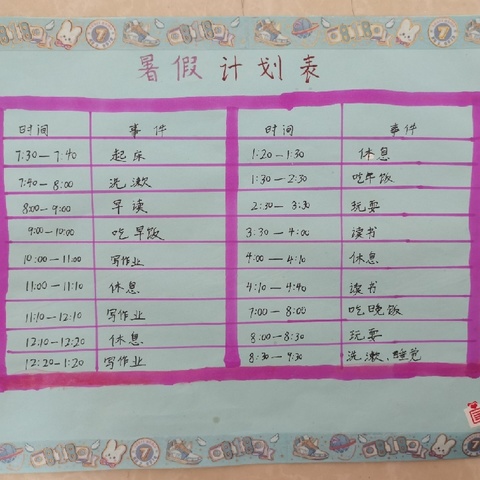 暑假计划表
时间 事件 时间 事件
7:30—7:40 起床 1:20—1:30 休息
7:40—8:00 洗漱 1:30—2:30 吃午饭
8:00—9:00 早读 2:30—3:30 玩耍
9:00—10:00 吃早饭 3:30—4:00 读书
10:00—11:00 写作业 4:00—4:10 休息
11:00—11:10 休息 4:10—4:40 读书
11:10—12:10 写作业 7:00—8:00 吃晚饭
12:10—12:20 休息 8:00—8:30 玩耍
12:20—1:20 写作业 8:30—9:30 洗漱、睡觉